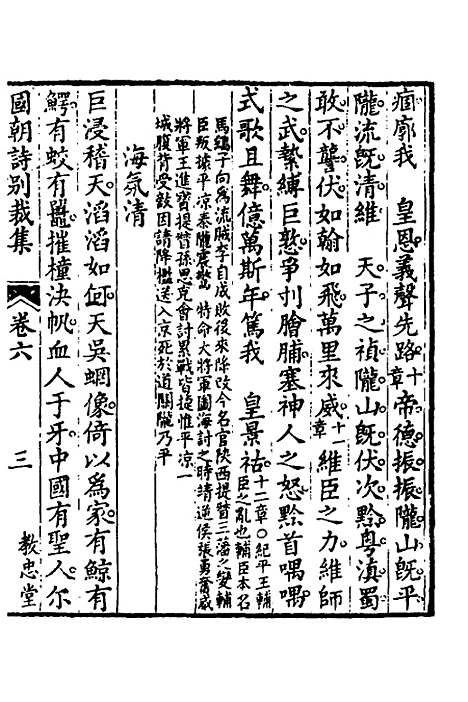 痼廓我　皇恩義聲先路十章帝德振振隴山旣平
隴流旣清維　天子之禎隴山旣伏次黔粵滇蜀
敢不讋伏如翰如飛萬里來威十一章維臣之力維師
之武縶縛巨憝爭刌膾脯塞神人之怒黔首喁喁
式歌且舞億萬斯年篤我　皇景祜十二章○紀平王輔臣之亂也輔臣本名
馬鷂子向爲流賊李自成敗後來降改今名官陝西提督三藩之變輔
臣叛據平凉秦隴震驚　特命大將軍圖海討之時靖逆侯張勇奮威
將軍王進寶提督孫思克會討累戰皆捷惟平凉一
城腹背受敵因請降檻送入京死於道關隴乃平
海氛清
巨浸稽天滔滔如天吳蝄像倚以爲家有鯨有
鰐有蛟有鼉摧橦決帆血人于牙中國有聖人尔
國朝詩别裁集　卷六　三　教忠堂